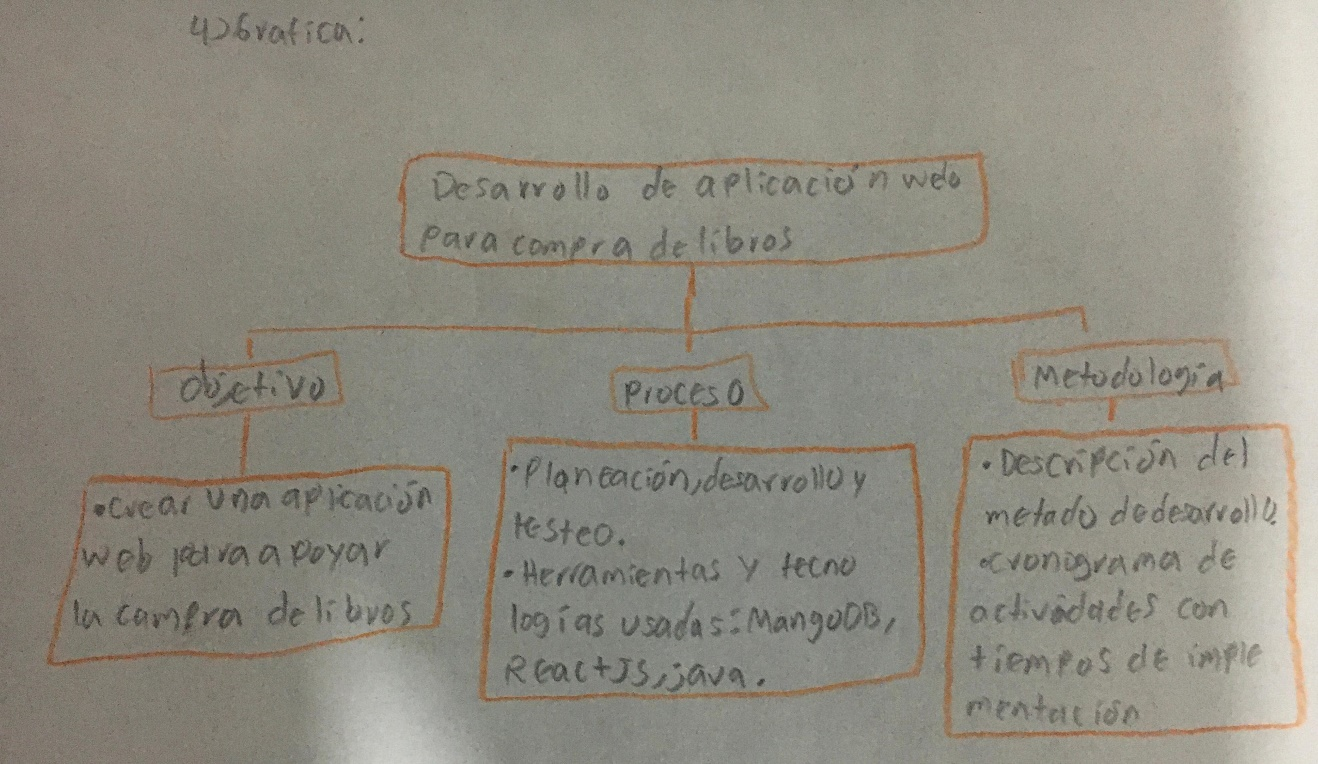 4) Grafica:
Desarrollo de aplicación web
para compra de libros
Objetivo
Proceso
Metodología
•Crear una aplicación
web para apoyar
la compra de libros
•Planeación, desarrollo y
testeo.
•Herramientas y tecno
logías usadas: MangoDB,
ReactJS, java.
•Descripción del
metado de desarrollo.
•cronograma de
actividades con
tiempos de imple
mentación